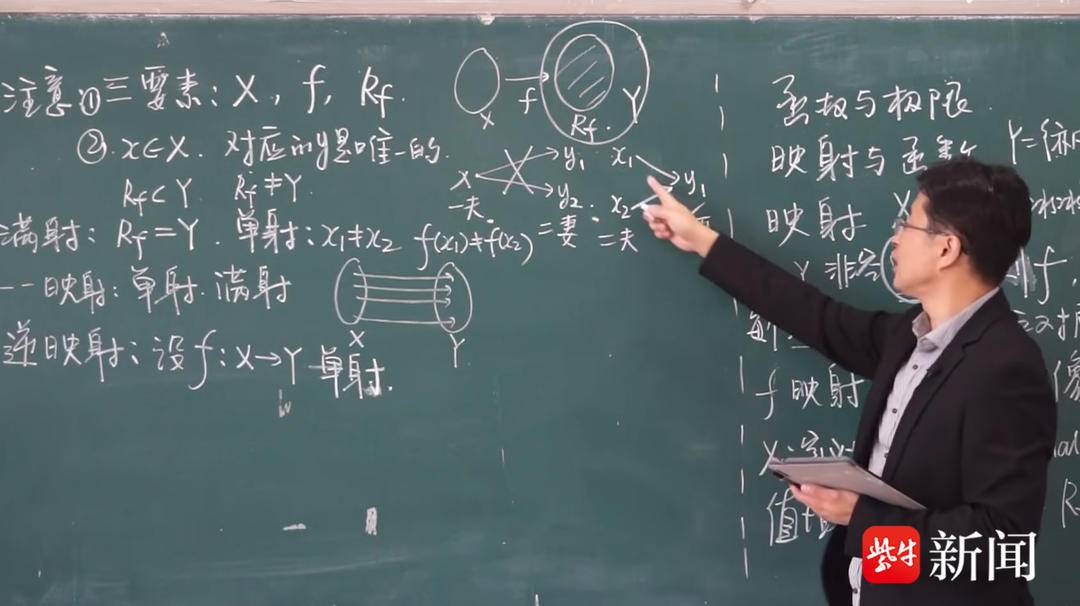 注意:①三要素:X, f, Rf.
②. x∈X. 对应的y是唯一的.
Rf⊂Y Rf≠Y.
满射: Rf=Y. 单射: x1≠x2 f(x1)≠f(x2)
一一映射: 单射.满射
逆映射: 设f: X→Y 单射.
f
X
Rf.
Y
x
y1
y2.
一夫.
=妻.
x1
x2
y1
=夫
X
Y
函数与极限.
映射与函数
映射
X
非空
f,
f映射
像
X:
值
R
紫牛 新闻